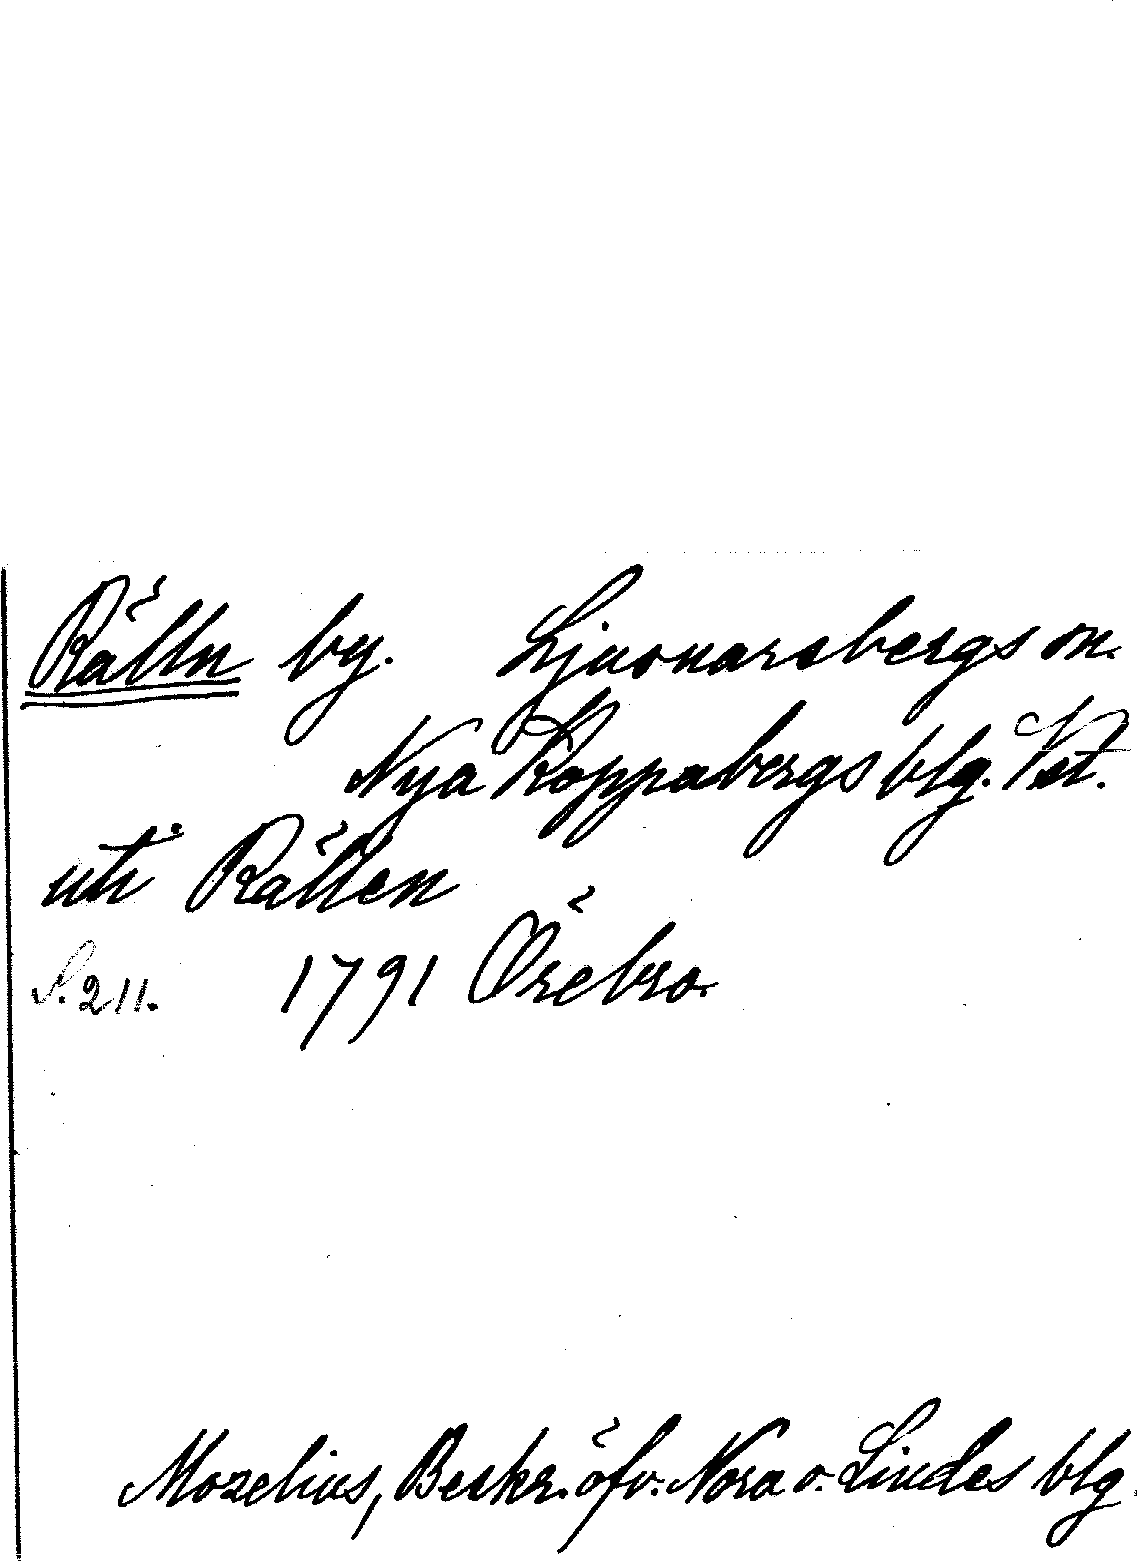 Rälln by. Ljusnarsbergs sn.
Nya Kopparbergs blg. Vst.
uti Rällen
S. 211. 1791 Örebro.
Mozelius, Beskr. öfv. Nora o. Lindes blg.